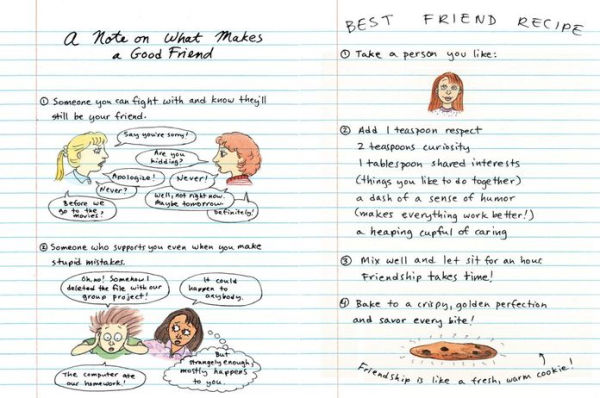 A Note on What Makes
a Good Friend
① Someone you can fight with and know they'll
still be your friend.
Say you're sorry!
Are you
kidding?
Apologize!
Never!
Never?
Well, not right now.
Maybe tomorrow.
Before we
go to the
movies?
Definitely!
② Someone who supports you even when you make
stupid mistakes.
Oh, no! Somehow I
deleted the file with our
group project!
It could
happen to
anybody.
The computer ate
our homework!
But
strangely enough,
mostly happens
to you.
BEST FRIEND RECIPE
① Take a person you like:
② Add 1 teaspoon respect
2 teaspoons curiosity
1 tablespoon shared interests
(things you like to do together)
a dash of a sense of humor
(makes everything work better!)
a heaping cupful of caring
③ Mix well and let sit for an hour
Friendship takes time!
④ Bake to a crispy, golden perfection
and savor every bite!
Friendship is like a fresh, warm cookie!